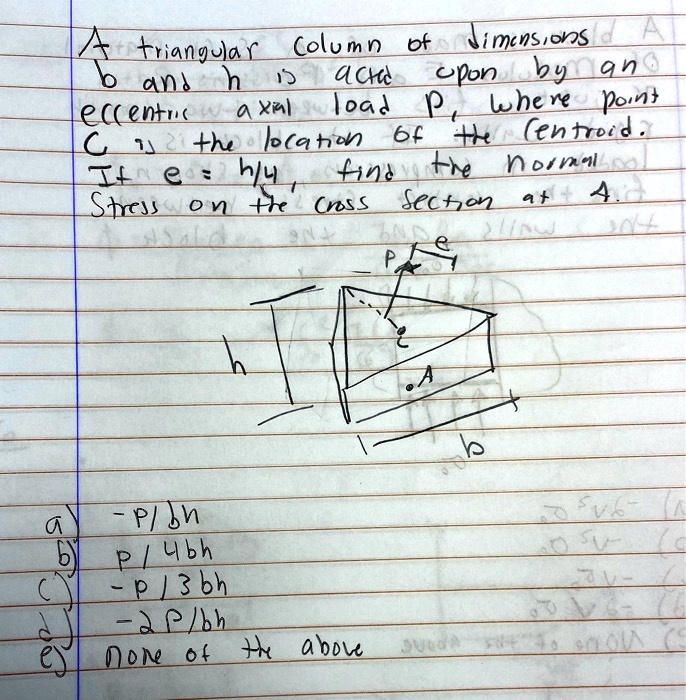 A triangular column of dimensions
b and h is acted upon by an
eccentric axial load P, where point
C is the location of the centroid.
If e = h/4, find the normal
Stress on the cross section at A.
P
e
C
h
A
b
a) -P/bh
b) P/4bh
c) -P/3bh
d) -2P/bh
e) none of the above